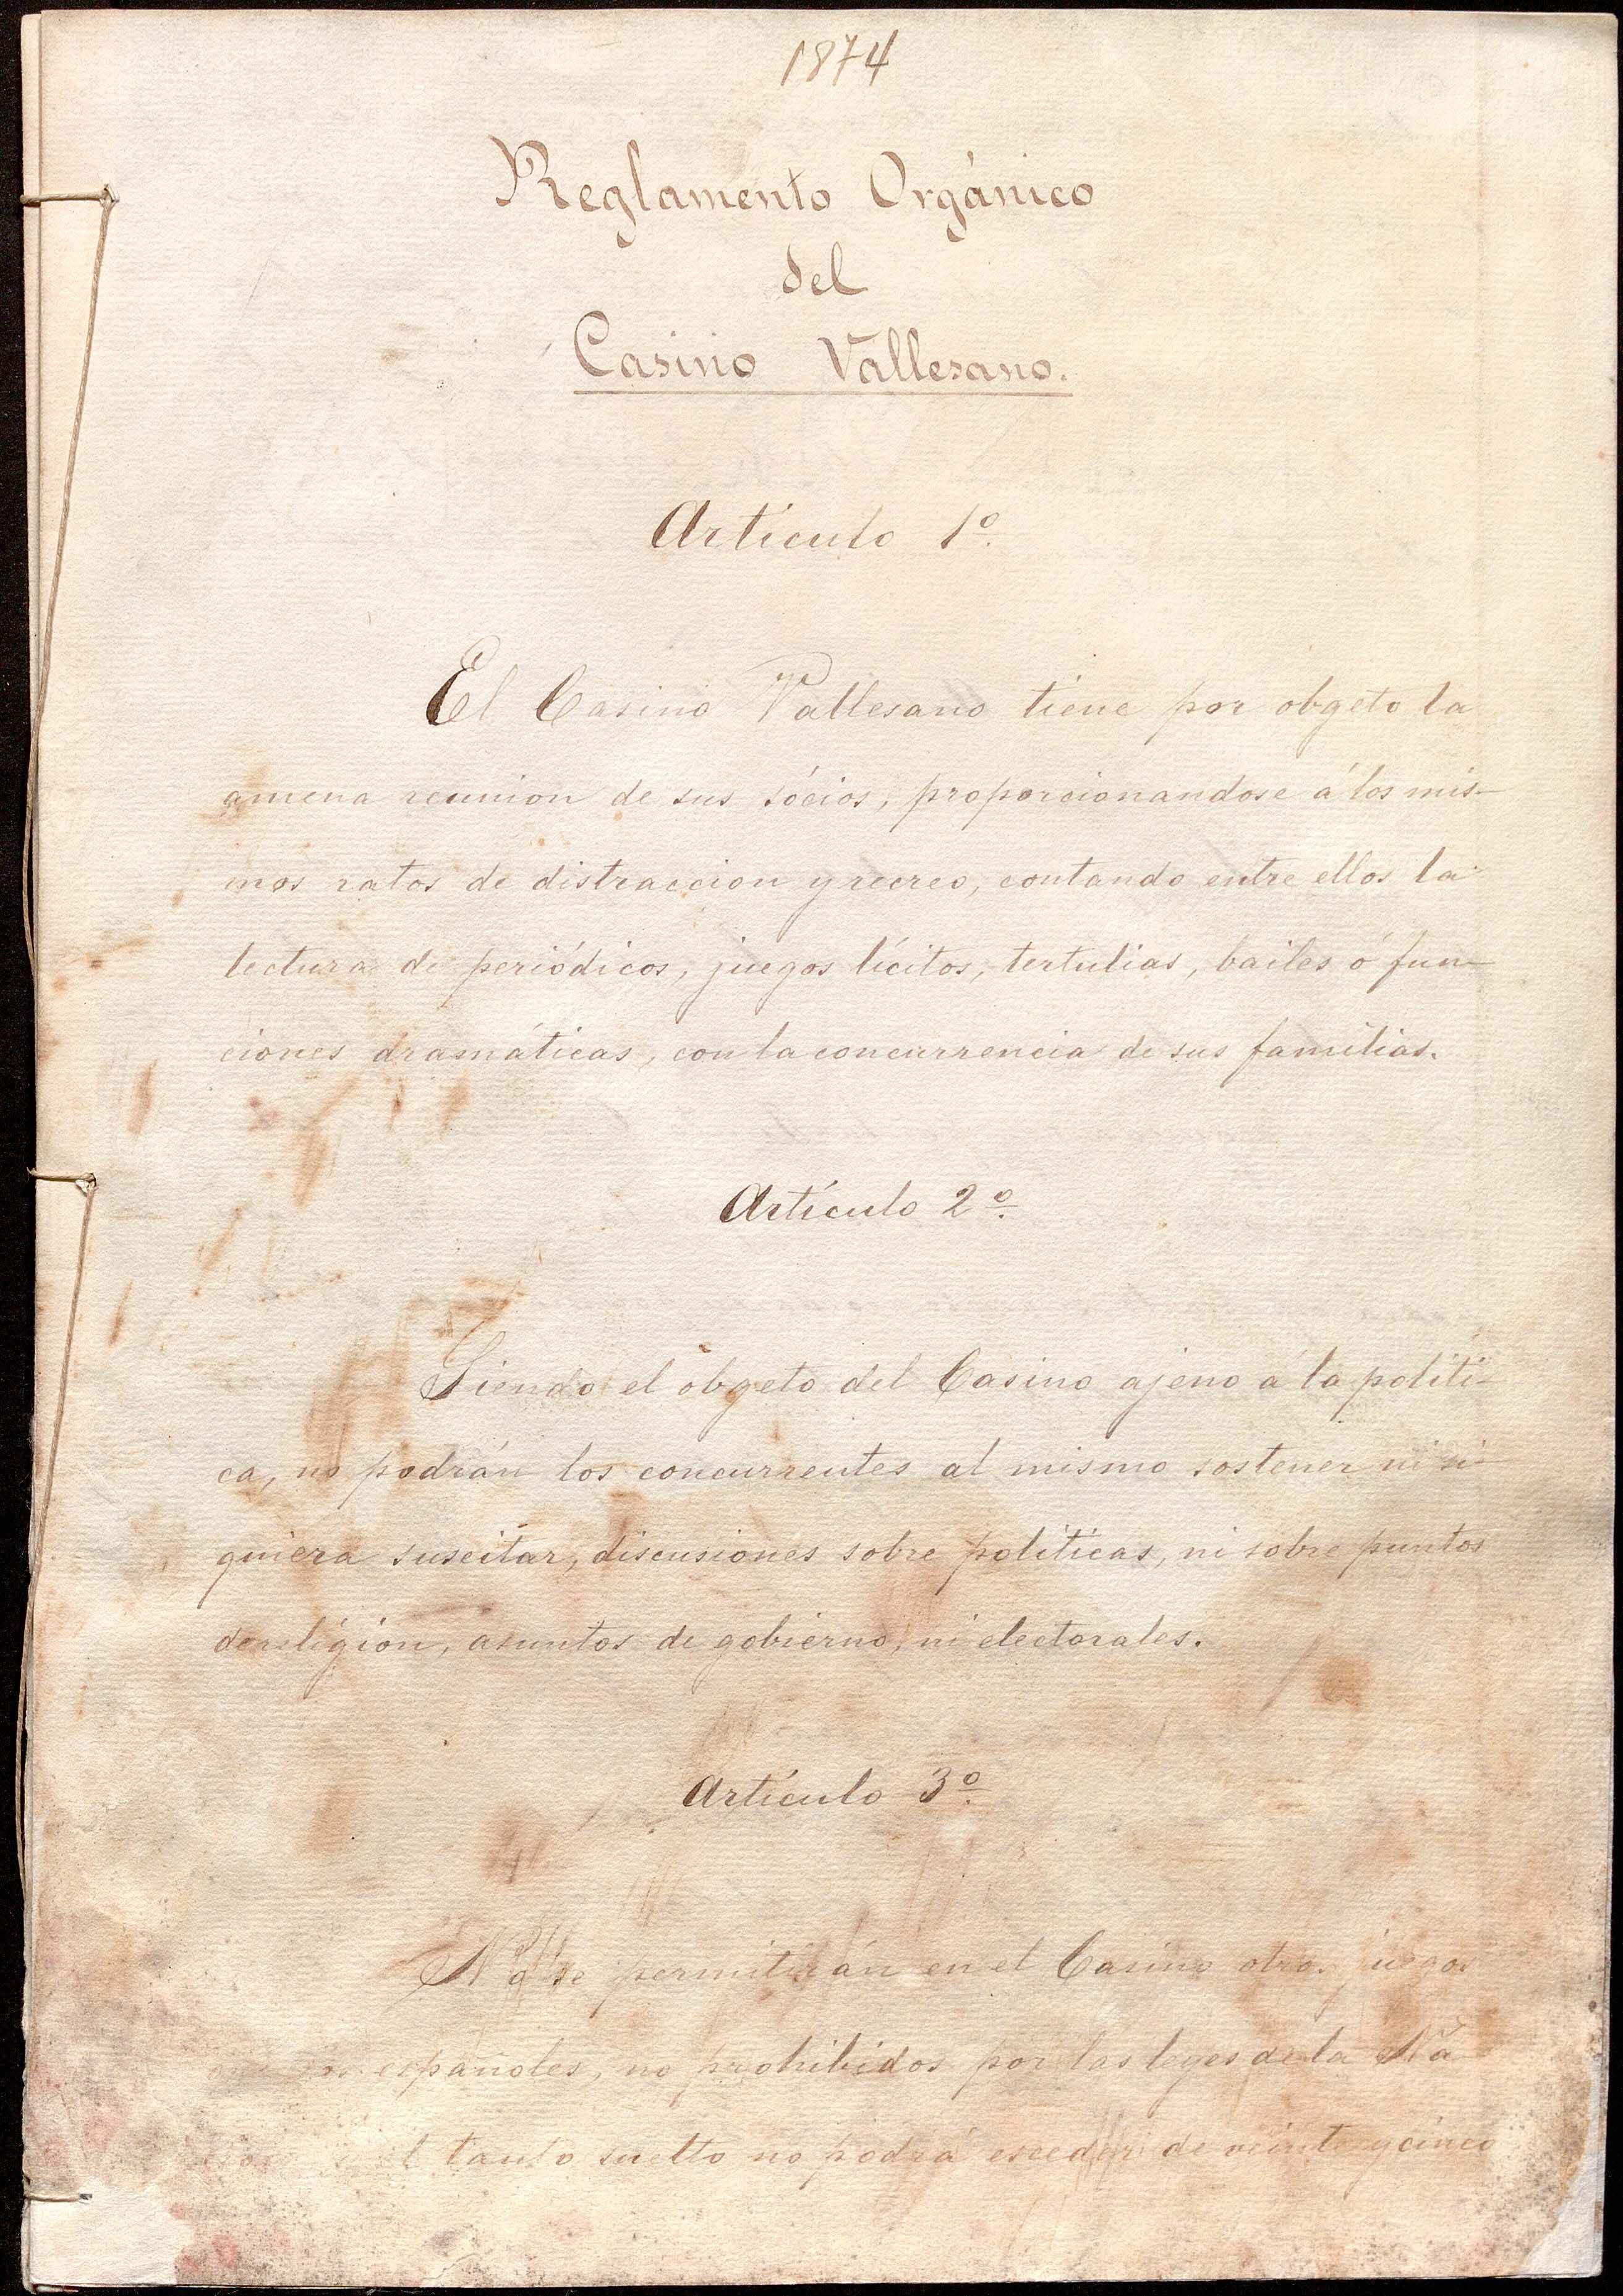 1874
Reglamento Orgánico
del
Casino Vallesano.
Artículo 1º.
El Casino Vallesano tiene por obgeto la
amena reunion de sus sócios, proporcionandose á los mis-
mos ratos de distraccion y recreo, contando entre ellos la
lectura de periódicos, juegos lícitos, tertulias, bailes ó fun-
ciones dramáticas, con la concurrencia de sus familias.
Artículo 2º.
Siendo el obgeto del Casino ajeno á la políti-
ca, no podrán los concurrentes al mismo sostener ni si-
quiera suscitar, discusiones sobre políticas, ni sobre puntos
de religion, asuntos de gobierno, ni electorales.
Artículo 3º.
No se permitirán en el Casino otros juegos
españoles, no prohibidos por las leyes de la Na
el tanto suelto no podrá esceder de veinte y cinco